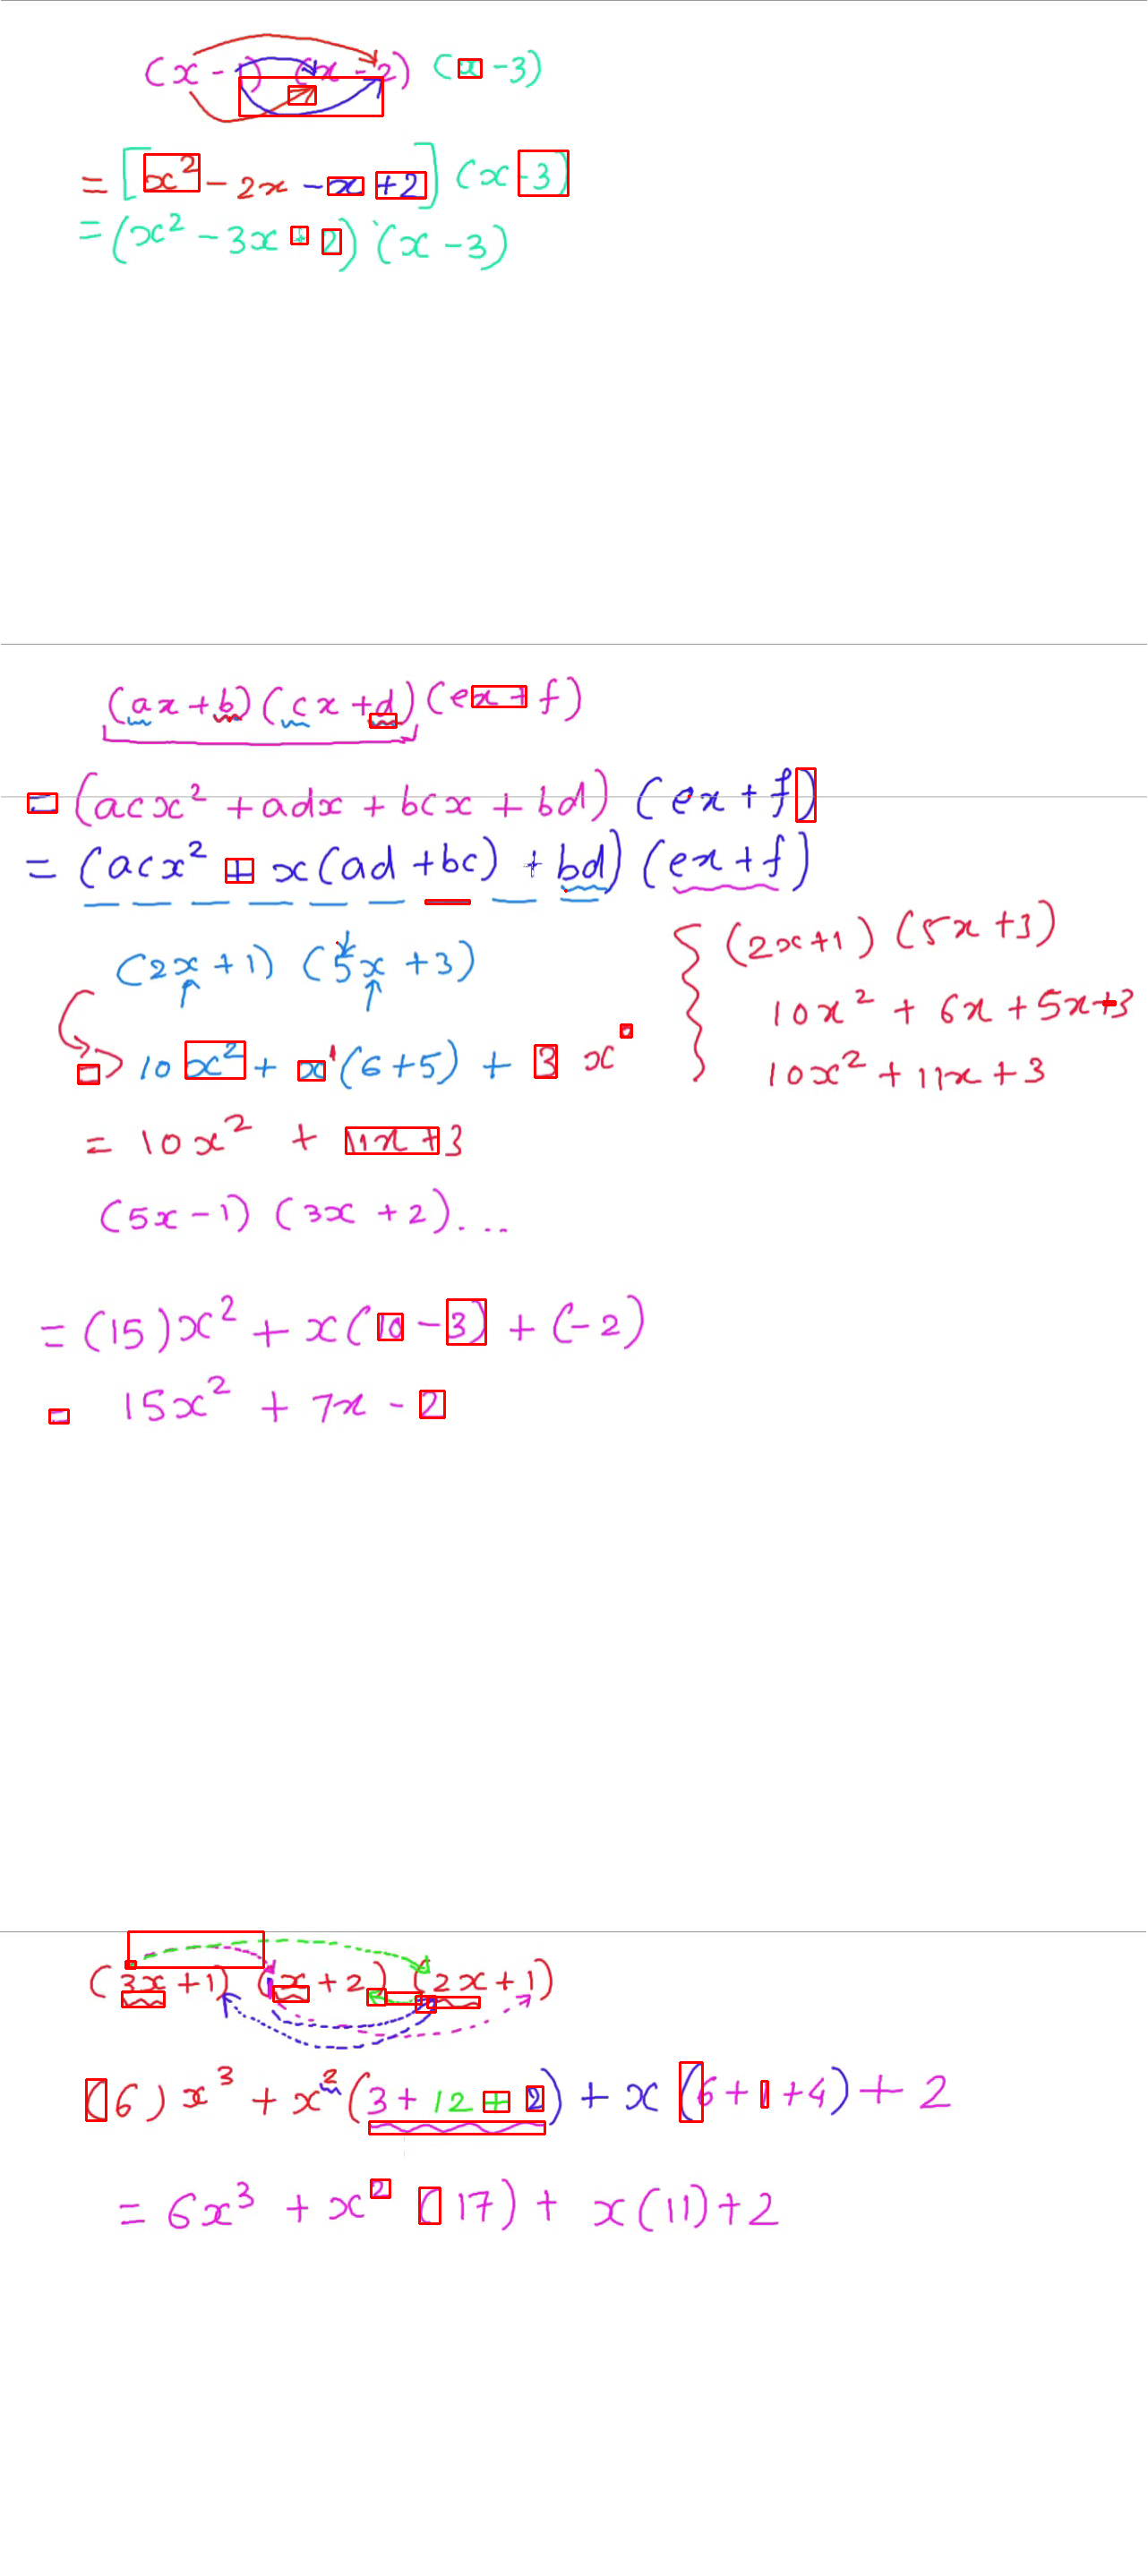 (x - 1) (x - 2) (x - 3)
= [x² - 2x - x + 2] (x - 3)
= (x² - 3x + 2) (x - 3)
(ax + b) (cx + d) (ex + f)
= (acx² + adx + bcx + bd) (ex + f)
= (acx² + x(ad + bc) + bd) (ex + f)
(2x + 1) (5x + 3)
10x² + x¹(6 + 5) + 3 x⁰
= 10x² + 11x + 3
(2x + 1) (5x + 3)
10x² + 6x + 5x + 3
10x² + 11x + 3
(5x - 1) (3x + 2)...
= (15)x² + x(10 - 3) + (-2)
= 15x² + 7x - 2
(3x + 1) (x + 2) (2x + 1)
(6)x³ + x²(3 + 12 + 2) + x(6 + 1 + 4) + 2
= 6x³ + x²(17) + x(11) + 2